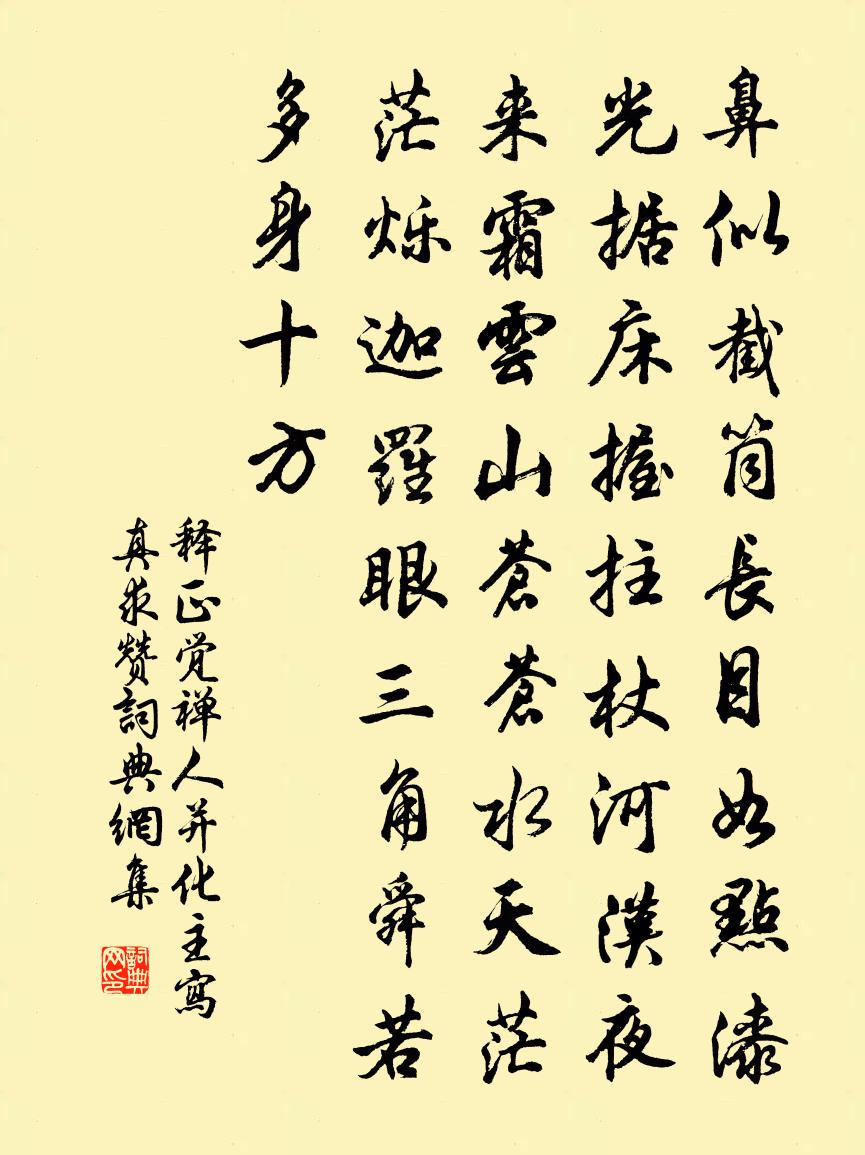 鼻似截筒長目如點漆
光据床握拄杖河漢夜
来霜雲山蒼蒼水天茫
茫烁迦羅眼三角舜若
多身十方
释正觉禅人并化主寫
真求赞詞典網集
詞典
网印